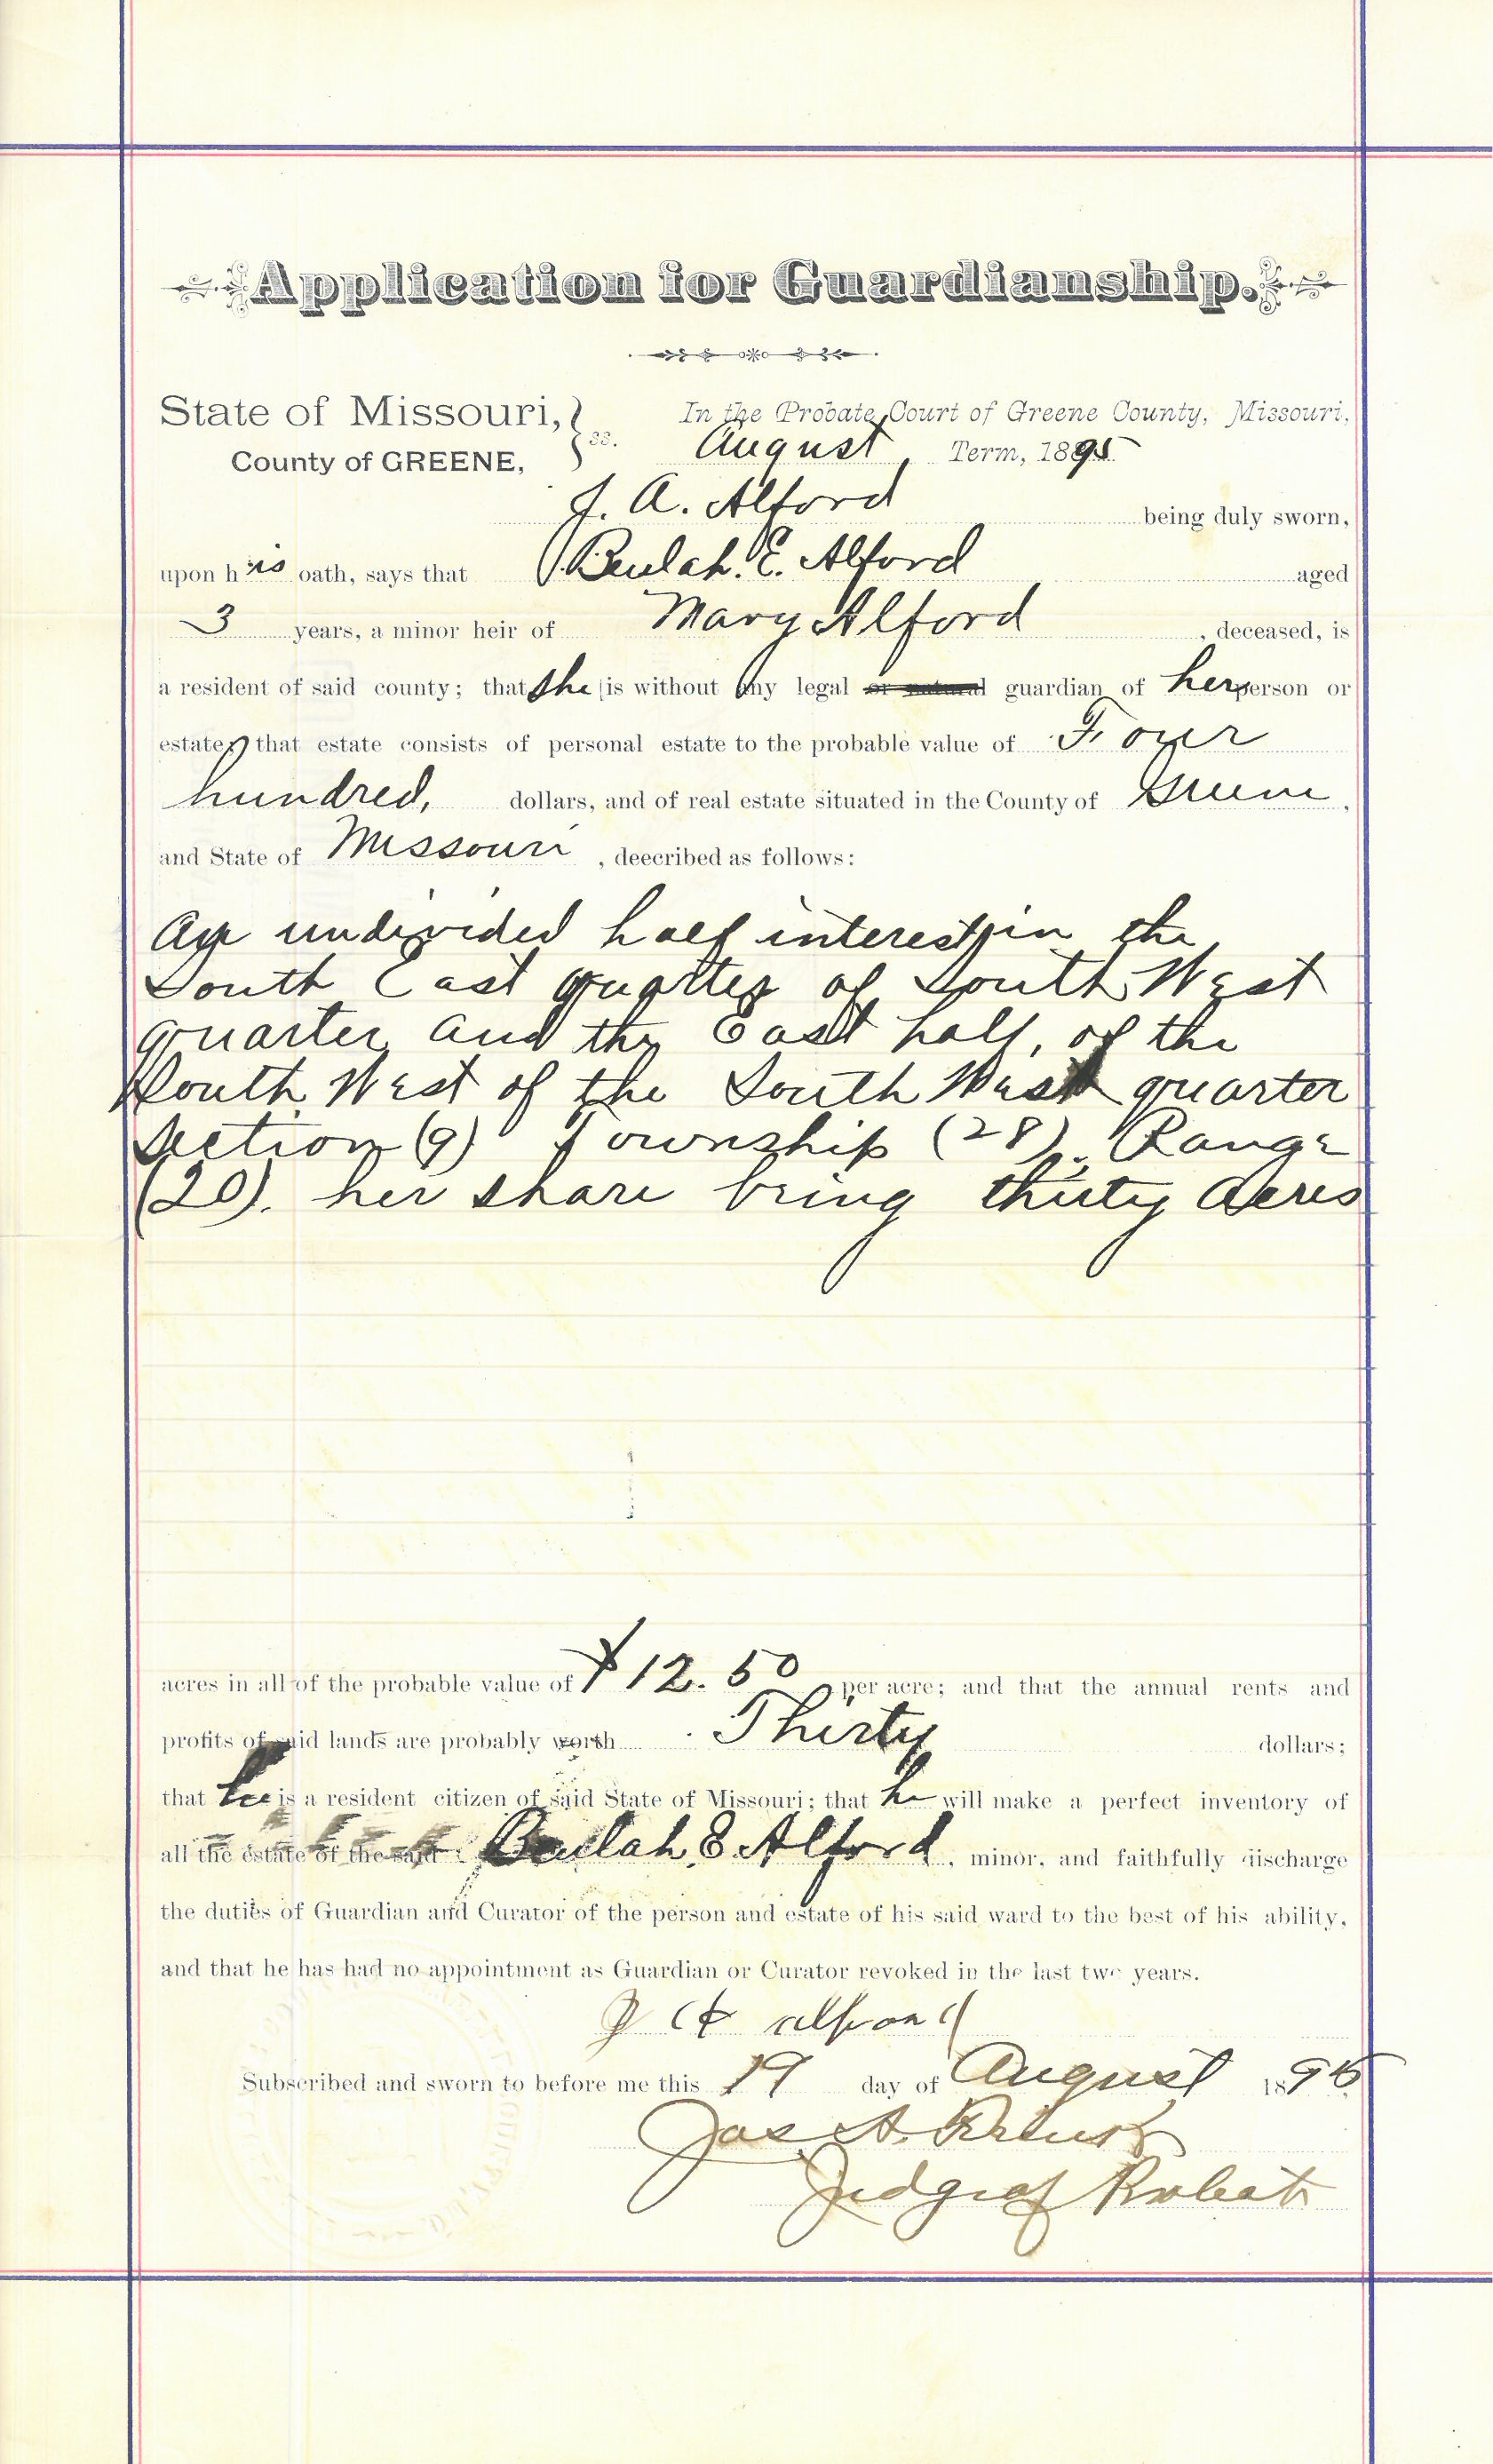 Application for Guardianship.
State of Missouri, } ss. In the Probate Court of Greene County, Missouri,
County of GREENE, August Term, 1895
J. A. Alford being duly sworn,
upon his oath, says that Beulah. E. Alford aged
3 years, a minor heir of Mary Alford, deceased, is
a resident of said county; that she is without any legal or natural guardian of her person or
estate; that estate consists of personal estate to the probable value of Four
hundred, dollars, and of real estate situated in the County of Greene,
and State of Missouri, deecribed as follows:
An undivided half interest in the
South East quarter of South West
quarter and the East half, of the
South West of the South West quarter
Section (9) Township (28). Range
(20). her share being thirty Acres
acres in all of the probable value of $12.50 per acre; and that the annual rents and
profits of said lands are probably worth Thirty dollars;
that he is a resident citizen of said State of Missouri; that he will make a perfect inventory of
all the estate of the said Beulah E Alford, minor, and faithfully discharge
the duties of Guardian and Curator of the person and estate of his said ward to the best of his ability,
and that he has had no appointment as Guardian or Curator revoked in the last two years.
J A alford
Subscribed and sworn to before me this 19 day of August 1895
Jas. A.
Judge of Probate